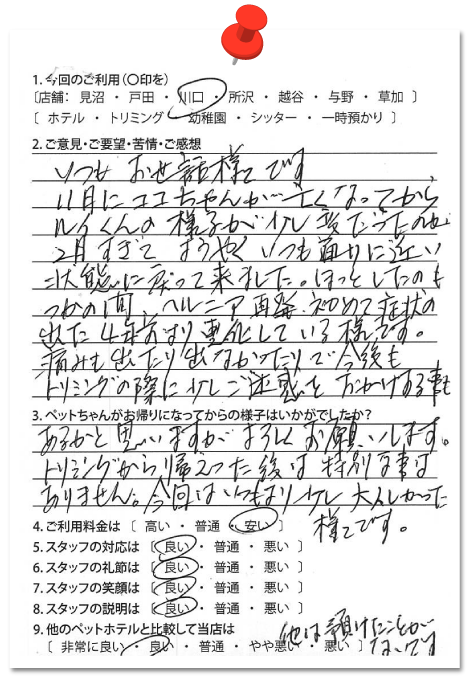 1. 今回のご利用(〇印を)
〔店舗： 見沼 ・ 戸田 ・ 川口 ・ 所沢 ・ 越谷 ・ 与野 ・ 草加 〕
［ ホテル ・ トリミング ・ 幼稚園 ・ シッター ・ 一時預かり ］
2. ご意見・ご要望・苦情・ご感想
いつも お世話様です
11月にココちゃんが亡くなってから
ルイくんの様子が少し変だったのが
2月すぎて ようやく いつも通りに近い
状態に戻って来ました。ほっとしたのも
つかの間、ヘルニア再発、初めて症状の
出た4年前より悪化している様です。
痛みも出たり出なかったりで今後も
トリミングの際に少しご迷惑をおかけする事も
3. ペットちゃんがお帰りになってからの様子はいかがでしたか？
あるかと思いますがよろしくお願いします。
トリミングから帰えった後は特別な事は
ありません。今回はいつもより少し大人しかった
様です。
4. ご利用料金は ［ 高い ・ 普通 ・ 安い ］
5. スタッフの対応は ［ 良い ・ 普通 ・ 悪い ］
6. スタッフの礼節は ［ 良い ・ 普通 ・ 悪い ］
7. スタッフの笑顔は ［ 良い ・ 普通 ・ 悪い ］
8. スタッフの説明は ［ 良い ・ 普通 ・ 悪い ］
9. 他のペットホテルと比較して当店は
他は預けたことが
ないです
［ 非常に良い ・ 良い ・ 普通 ・ やや悪い ・ 悪い ］